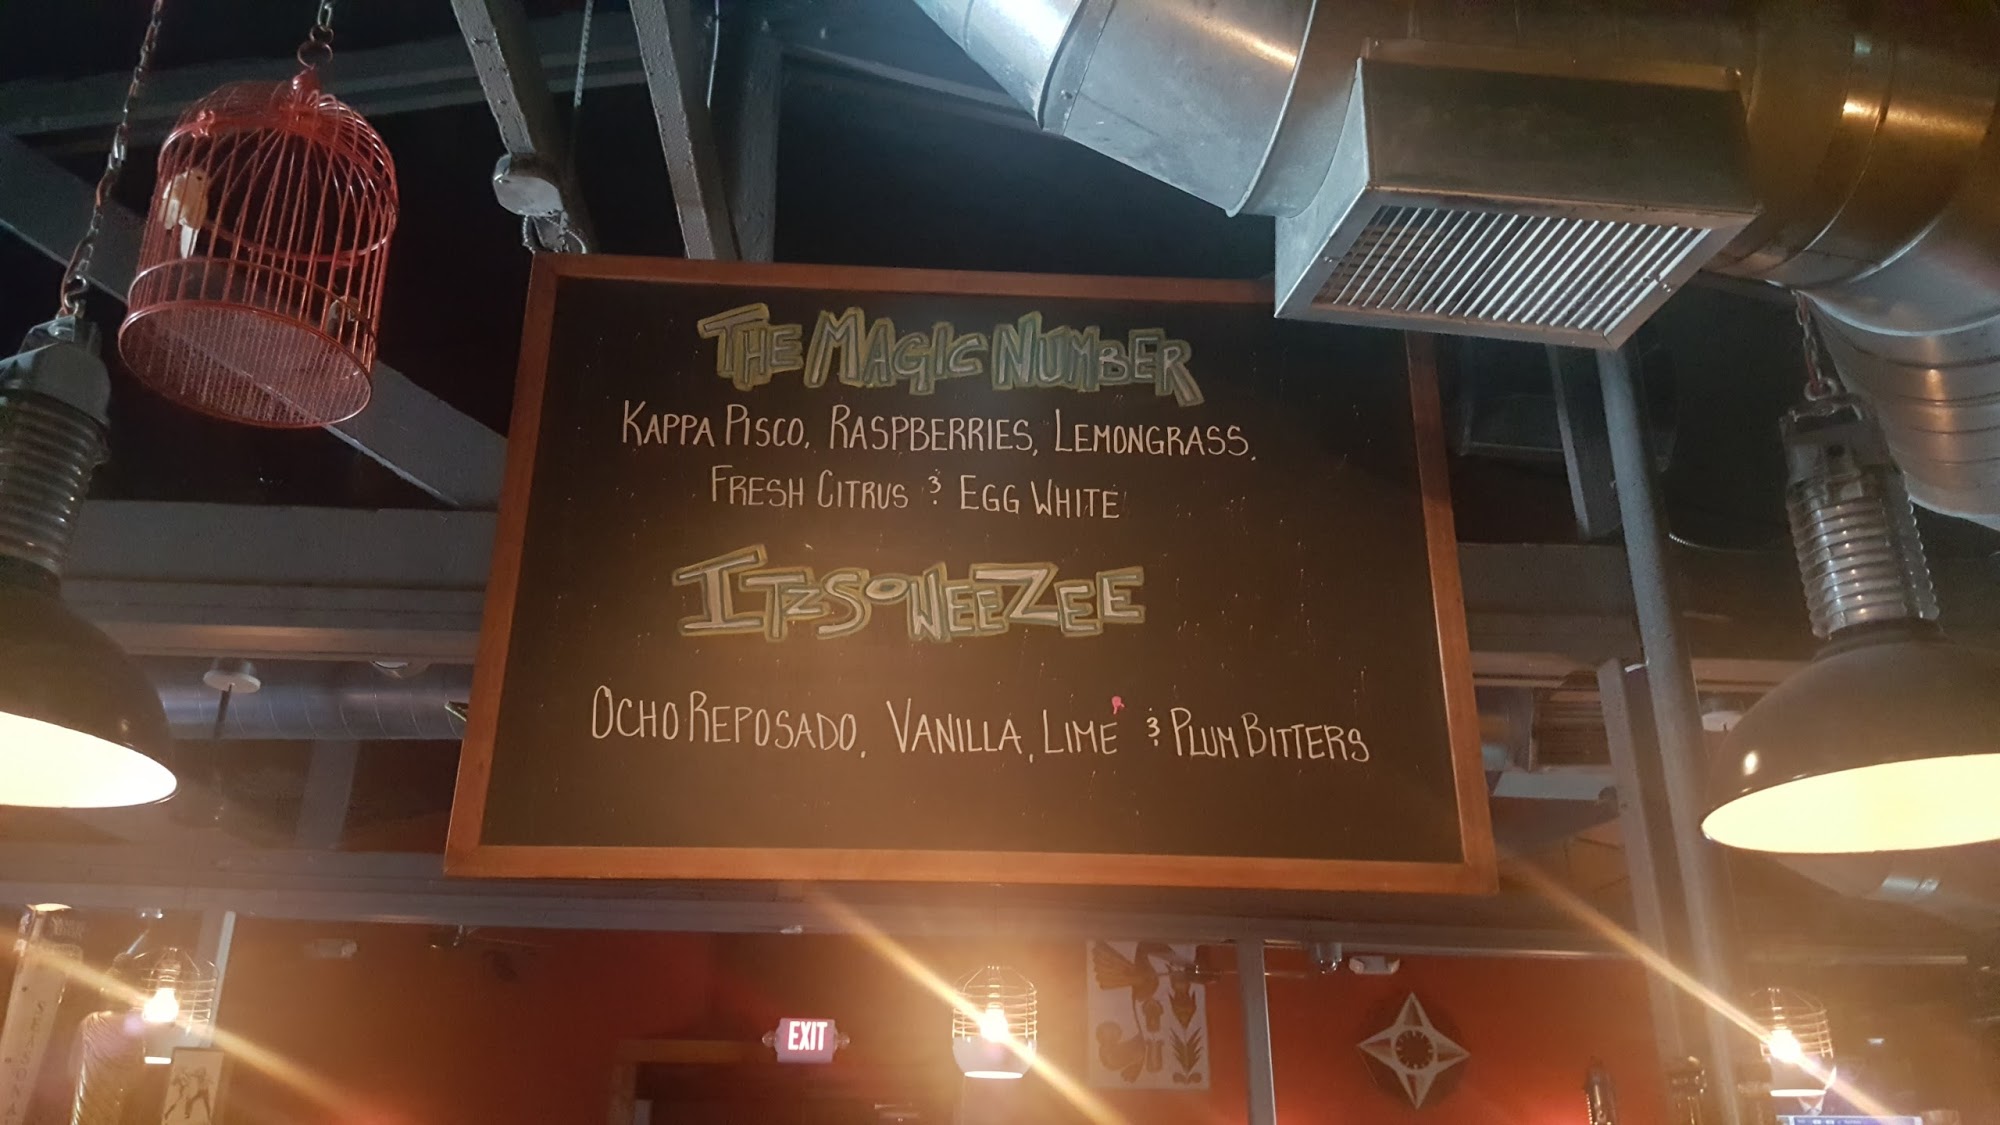 THE MAGIC NUMBER
KAPPA PISCO, RASPBERRIES, LEMONGRASS,
FRESH CITRUS & EGG WHITE
ITZSOWEEZEE
OCHO REPOSADO, VANILLA, LIME & PLUM BITTERS
EXIT